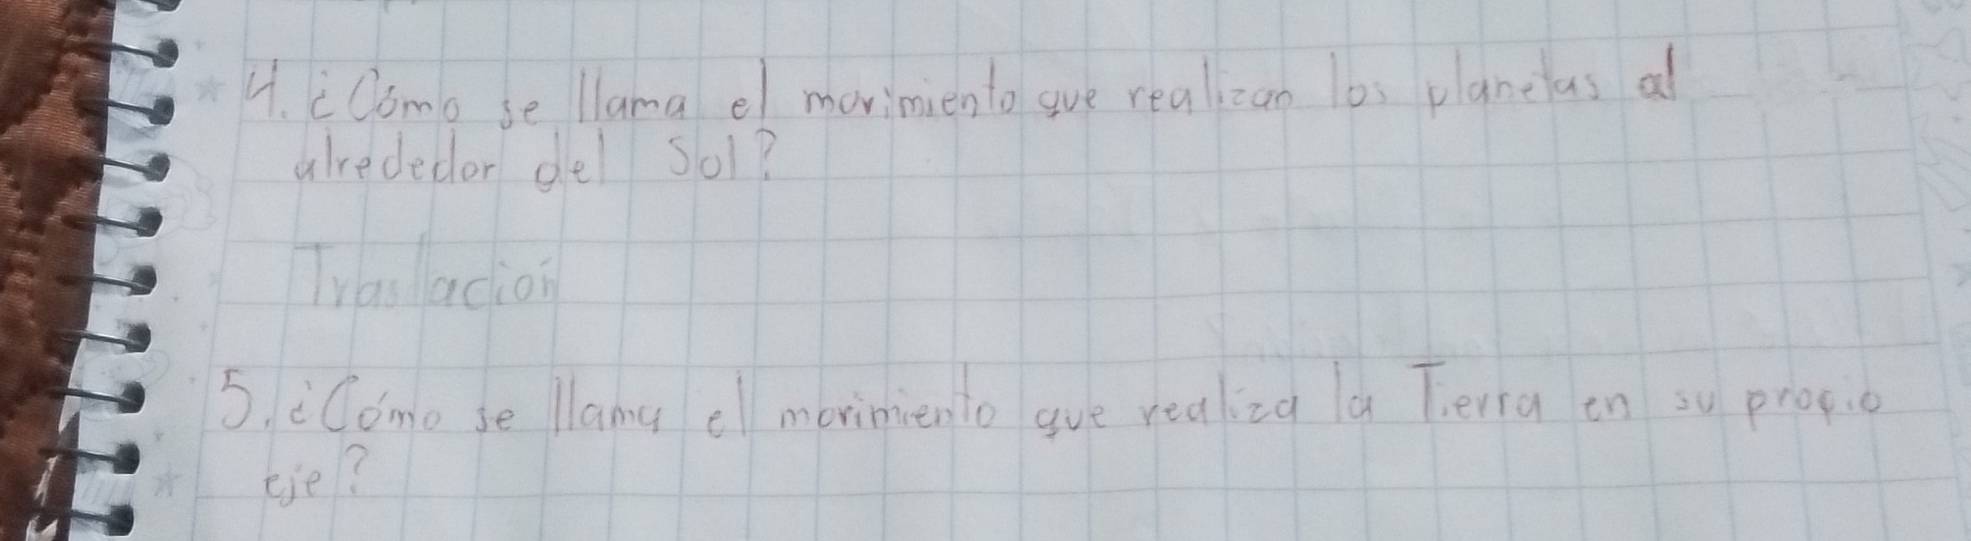 4. ¿Cómo se llama el movimiento que realizan los planetas al
alrededor del Sol?
Traslación
5. ¿Cómo se llama el movimiento que realiza la Tierra en su propio
eje?